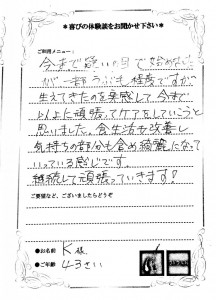 ＊喜びの体験談をお聞かせ下さい＊
ご利用メニュー：
今まで疑いの目で始めない
が一部うぶも程度ですが
生えてきたのを実感して、今まで
以上に頑張ってケアをしていこうと
思いました。食生活を改善し
気持ちの部分も含め綺麗になって
いっている感じです。
継続して頑張っていきます！
ご要望など、ございましたらどうぞ
●お名前 K 様
●ご年齢 43さい